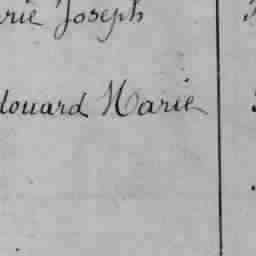 rie Joseph
douard Marie